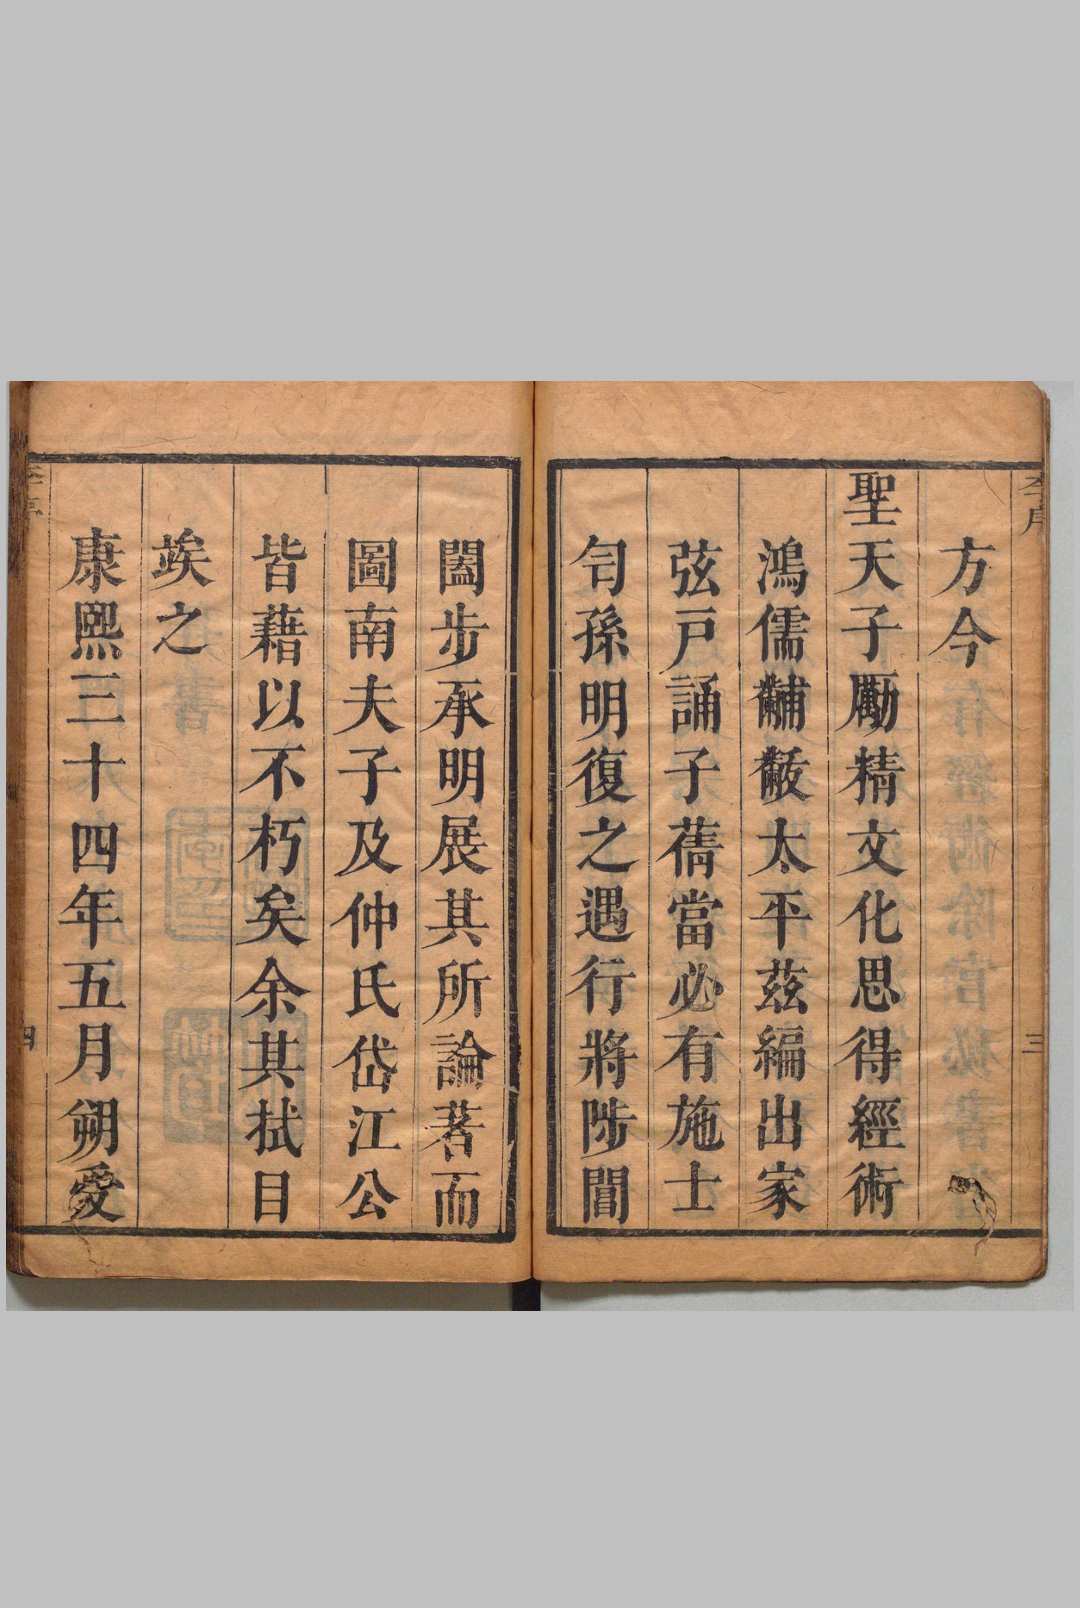 方今
聖天子勵精文化思得經術
鴻儒黼黻太平茲編出家
弦戸誦子蒨當必有施士
匄孫明復之遇行將陟閶
闔步承明展其所論著而
圖南夫子及仲氏岱江公
皆藉以不朽矣余其拭目
竢之
康熙三十四年五月朔愛
三
四